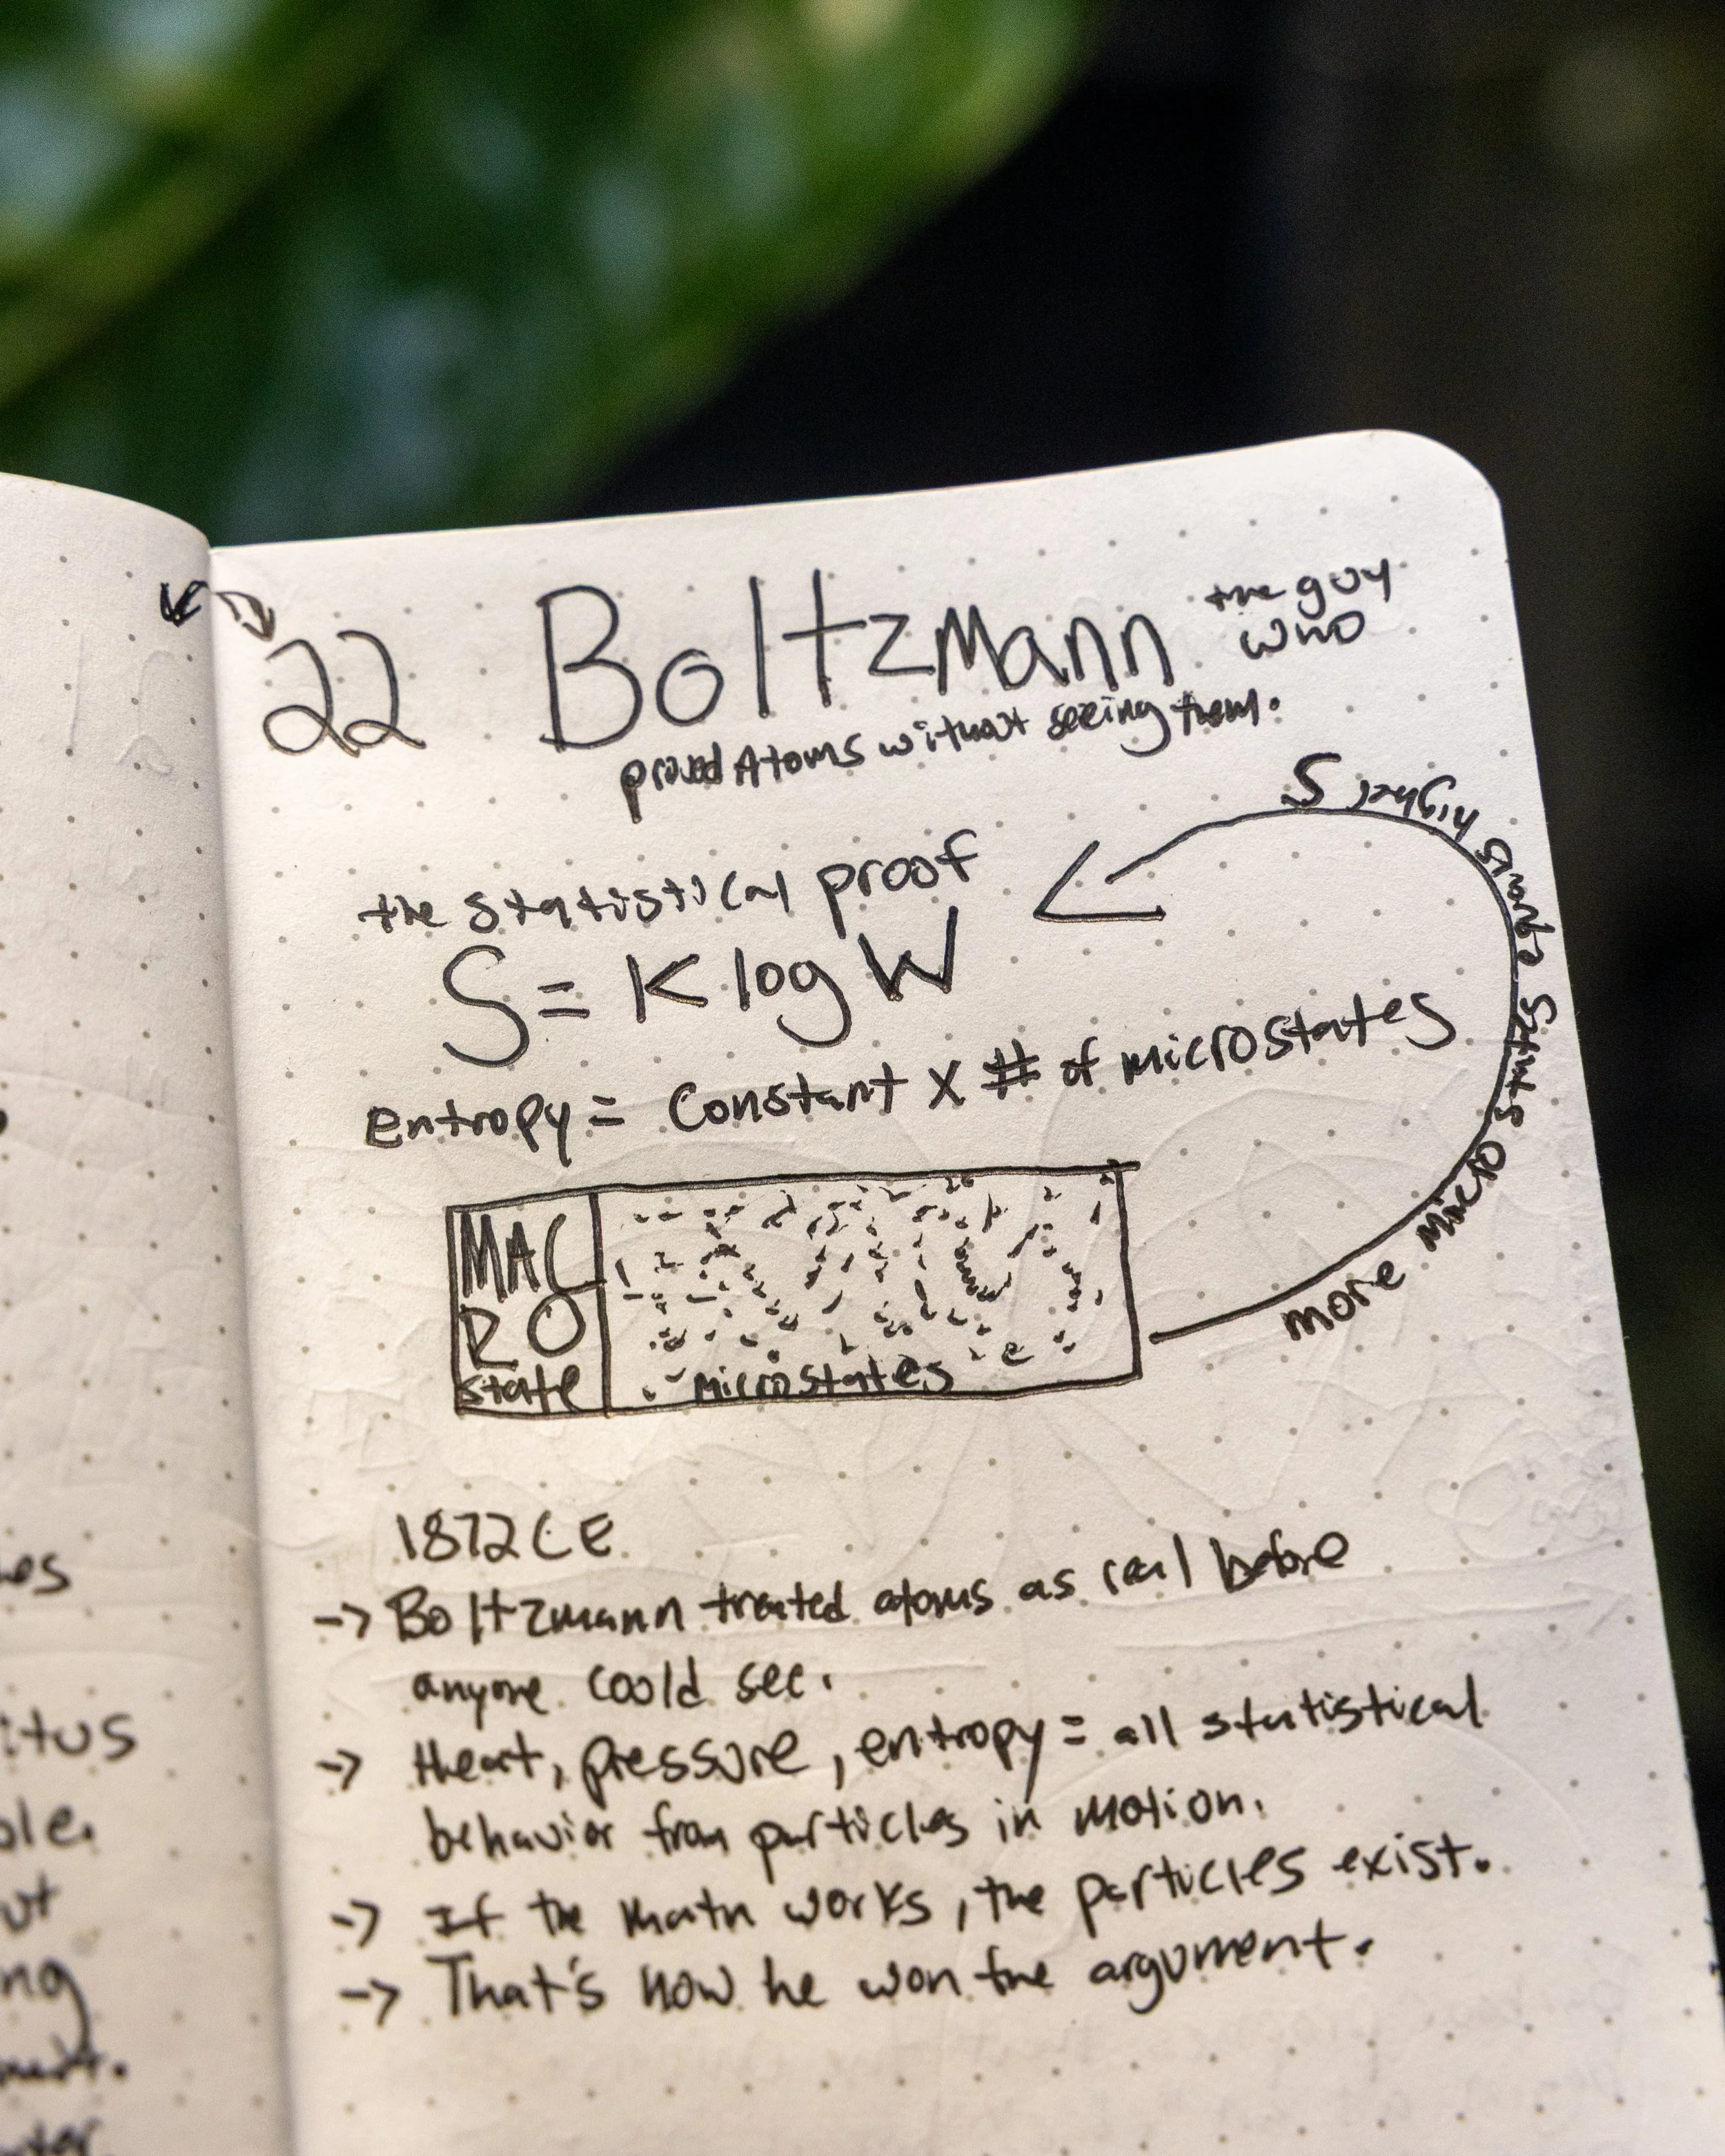 22 Boltzmann the guy
who
proved Atoms without seeing them.
the statistical proof
S = K log W
entropy = Constant x # of microstates
more micro states equals higher S
MAC
RO
state
microstates
1872 CE
-> Boltzmann treated atoms as real before
anyone could see.
-> Heat, pressure, entropy = all statistical
behavior from particles in motion.
-> If the math works, the particles exist.
-> That's how he won the argument.
itus
ng